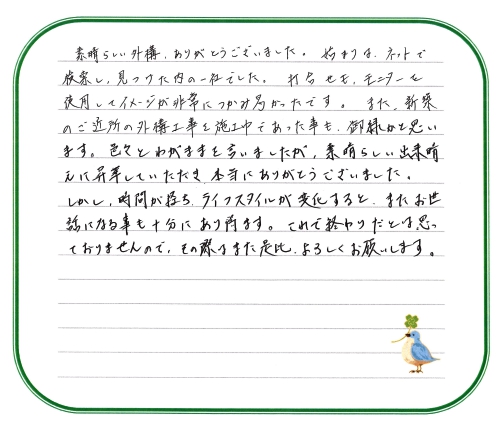 素晴らしい外構、ありがとうございました。 始まりは、ネットで
検索し、見つけた内の一社でした。 打合せも、モニターを
使用してイメージが非常につかみ易かったです。 また、新築
のご近所の外構工事を施工中であった事も、御縁かと思い
ます。色々とわがままを言いましたが、素晴らしい出来晴
えに昇華していただき、本当にありがとうございました。
しかし、時間が経ち、ライフスタイルが変化すると、またお世
話になる事も十分にあり得ます。これで終わりだとは思っ
ておりませんので、その際はまた是比、よろしくお願いします。